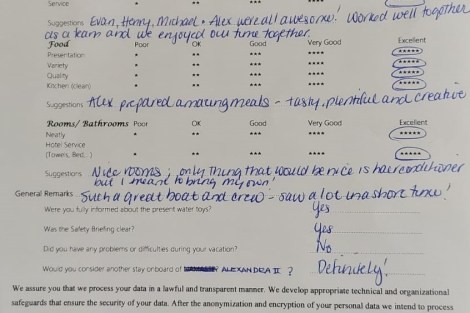 Service
Suggestions Evan, Henry, Michael + Alex were all awesome! Worked well together
as a team and we enjoyed our time together.
Food Poor OK Good Very Good Excellent
Presentation ** *** **** *****
Variety ** *** **** *****
Quality ** *** **** *****
Kitchen (clean) ** *** **** *****
Suggestions Alex prepared amazing meals - tasty, plentiful and creative
Rooms/ Bathrooms Poor OK Good Very Good Excellent
Neatly * ** *** **** *****
Hotel Service
(Towers, Bed...) * ** *** **** *****
Suggestions Nice rooms; only thing that would be nice is hair conditioner
but I meant to bring my own!
General Remarks Such a great boat and crew - saw a lot in a short time!
Were you fully informed about the present water toys? Yes
Was the Safety Briefing clear? Yes
Did you have any problems or difficulties during your vacation? No
Would you consider another stay onboard of ALEXANDRA II ? Definitely!
We assure you that we process your data in a lawful and transparent manner. We develop appropriate technical and organizational
safeguards that ensure the security of your data. After the anonymization and encryption of your personal data we intend to process